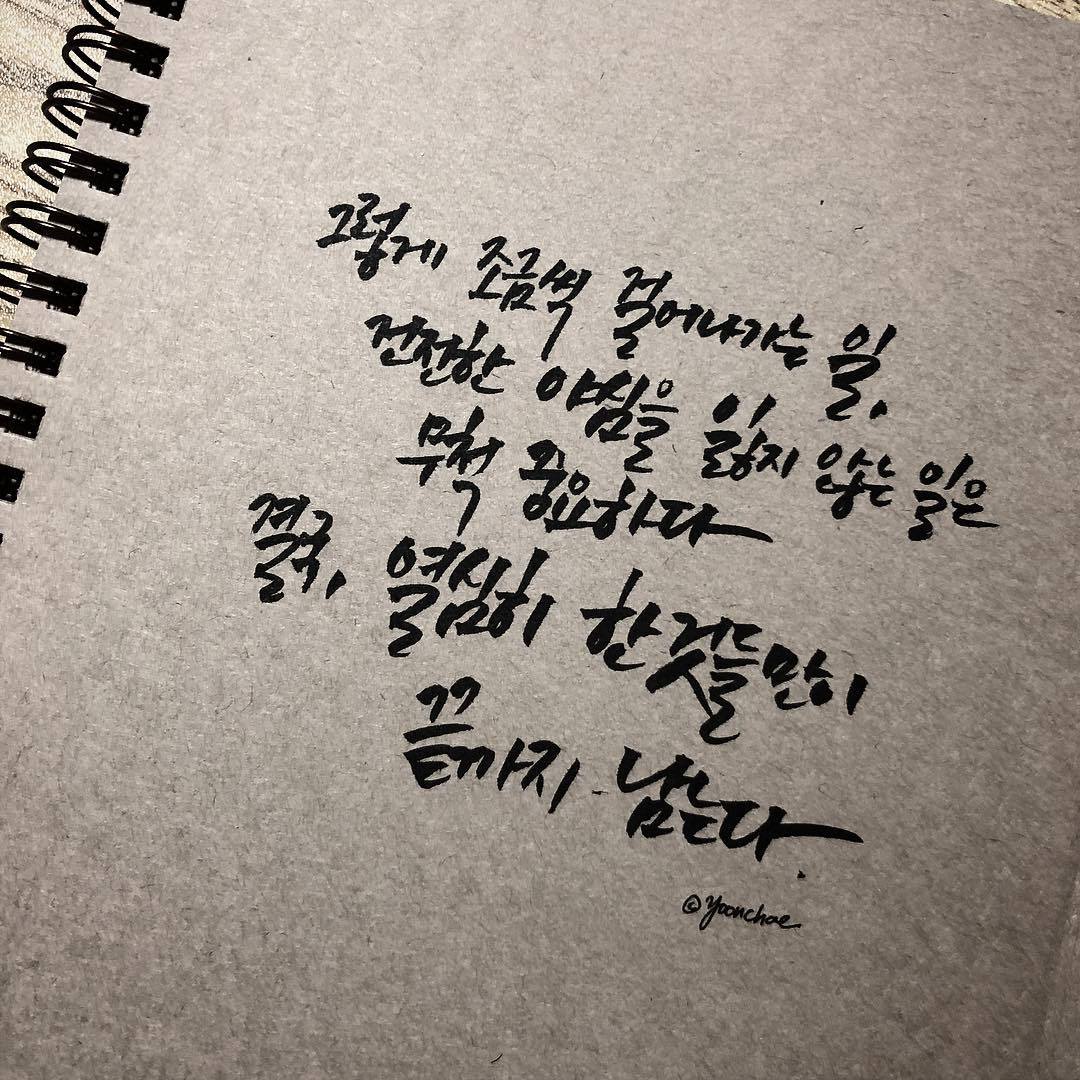 그렇게 조금씩 걸어나가는 일,
건전한 야심을 잃지 않는 일은
무척 중요하다
결국, 열심히 한것들만이
끝까지 남는다.
©yoonchae